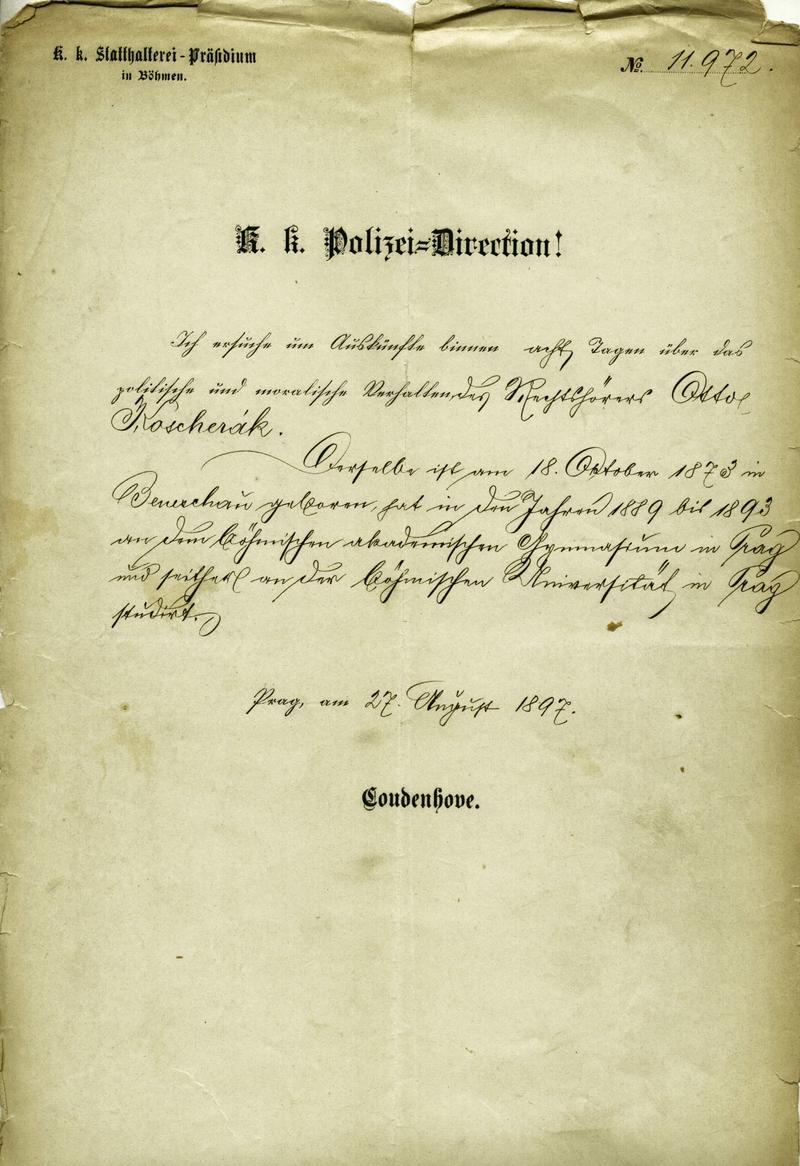 K. k. Statthalterei-Präsidium
in Böhmen.
No. 11.972.
K. k. Polizei-Direction!
Ich ersuche um Auskünfte binnen acht Tagen über das
politische und moralische Verhalten des Rechtshörers Otto
Koscherák.
Derselbe ist am 18. Oktober 1873 in
Beneschau geboren, hat in den Jahren 1889 bis 1893
an dem böhmischen akademischen Gymnasium in Prag
und seither an der böhmischen Universität in Prag
studirt.
Prag, am 27. August 1897.
Coudenhove.